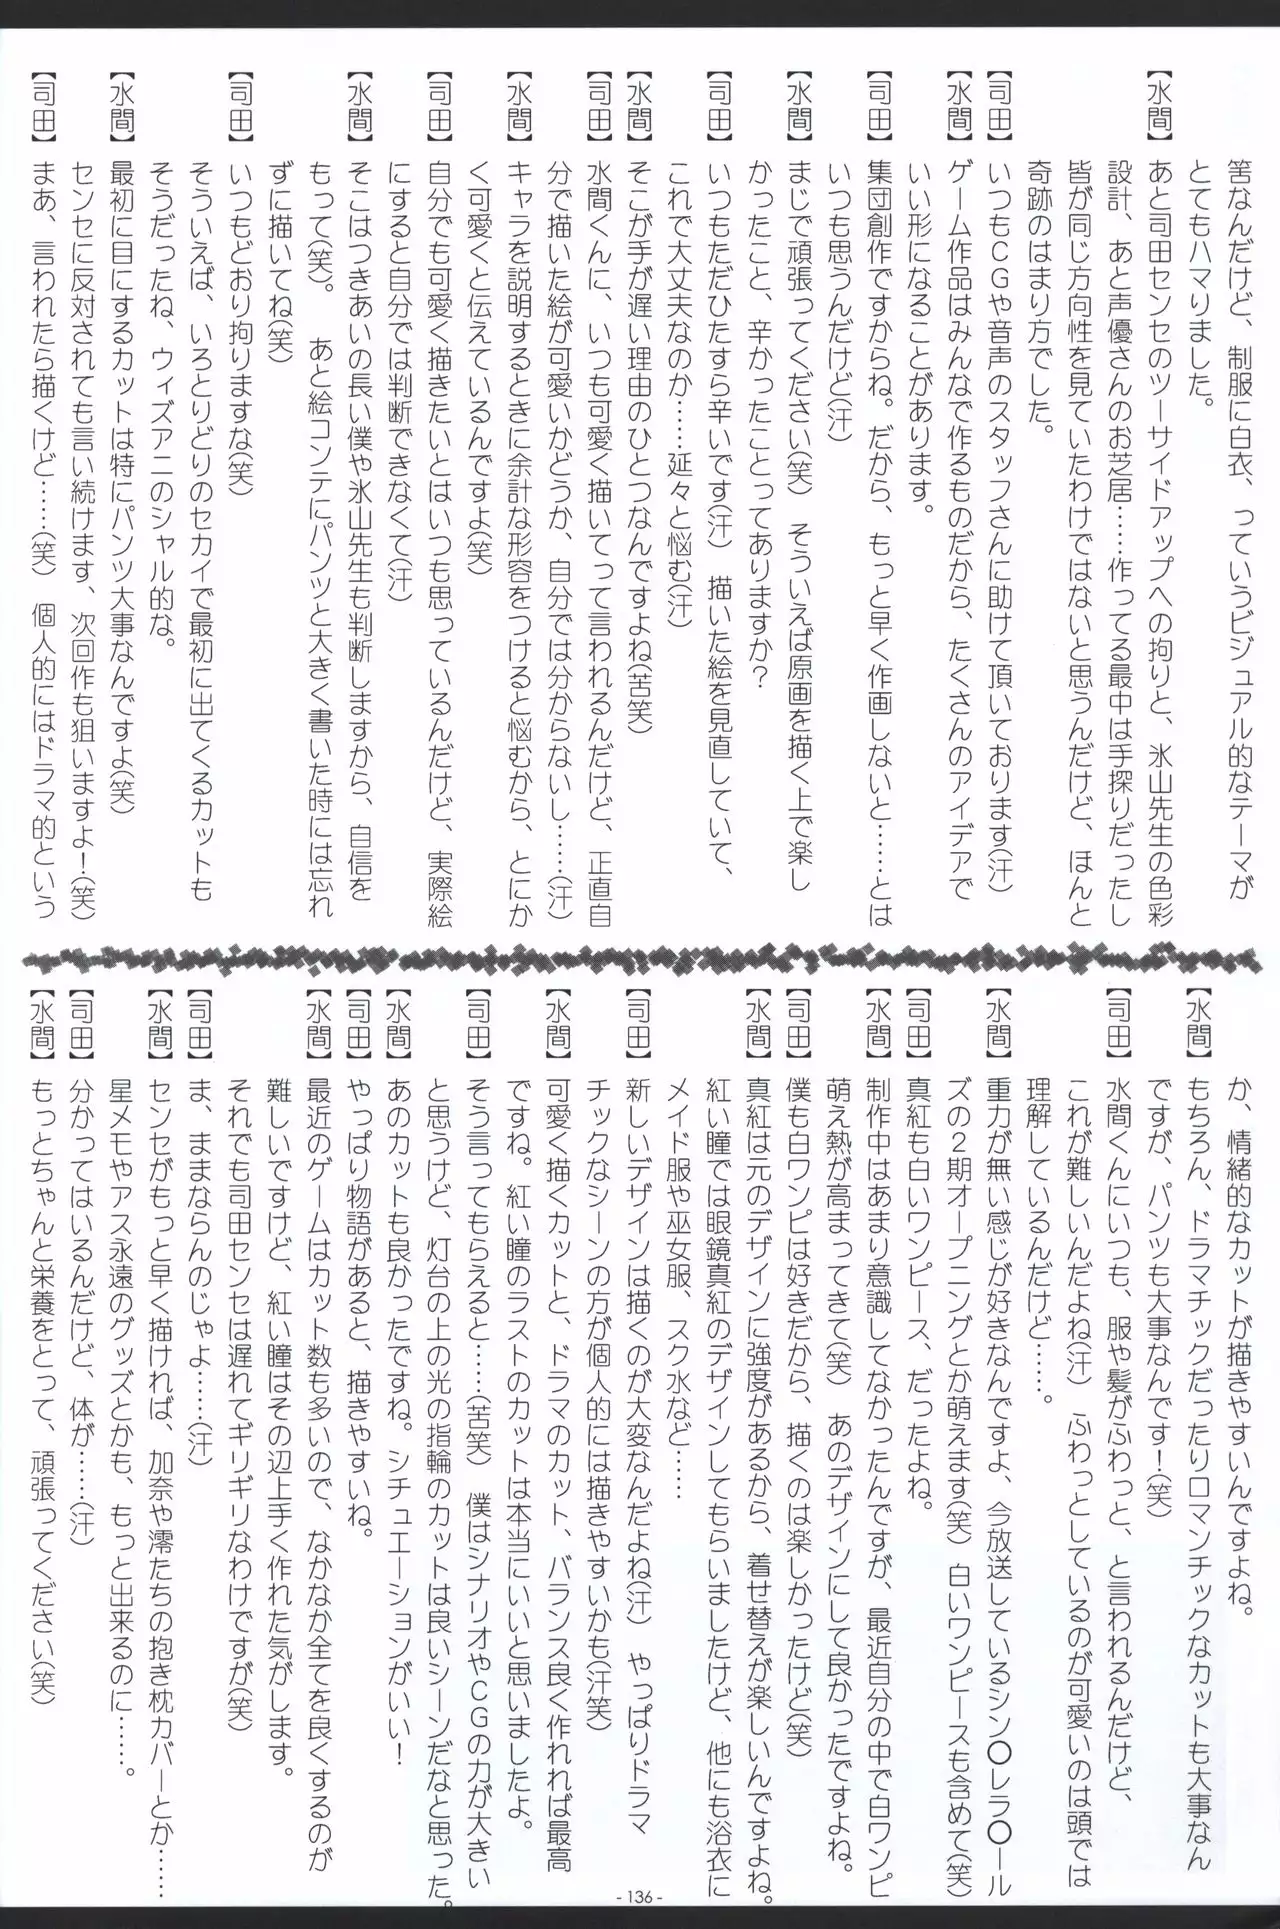 筈なんだけど、制服に白衣、っていうビジュアル的なテーマが
とてもハマりました。
【水間】 あと司田センセのツーサイドアップへの拘りと、氷山先生の色彩
設計、あと声優さんのお芝居……作ってる最中は手探りだったし
皆が同じ方向性を見ていたわけではないと思うんだけど、ほんと
奇跡のはまり方でした。
【司田】 いつもCGや音声のスタッフさんに助けて頂いております(汗)
【水間】 ゲーム作品はみんなで作るものだから、たくさんのアイデアで
いい形になることがあります。
【司田】 集団創作ですからね。だから、もっと早く作画しないと……とは
いつも思うんだけど(汗)
【水間】 まじで頑張ってください(笑) そういえば原画を描く上で楽し
かったこと、辛かったことってありますか?
【司田】 いつもただひたすら辛いです(汗) 描いた絵を見直していて、
これで大丈夫なのか……延々と悩む(汗)
【水間】 そこが手が遅い理由のひとつなんですよね(苦笑)
【司田】 水間くんに、いつも可愛く描いてって言われるんだけど、正直自
分で描いた絵が可愛いかどうか、自分では分からないし……(汗)
【水間】 キャラを説明するときに余計な形容をつけると悩むから、とにか
く可愛くと伝えているんですよ(笑)
【司田】 自分でも可愛く描きたいとはいつも思っているんだけど、実際絵
にすると自分では判断できなくて(汗)
【水間】 そこはつきあいの長い僕や氷山先生も判断しますから、自信を
もって(笑)。 あと絵コンテにパンツと大きく書いた時には忘れ
ずに描いてね(笑)
【司田】 いつもどおり拘りますな(笑)
そういえば、いろとりどりのセカイで最初に出てくるカットも
そうだったね、ウィズアニのシャル的な。
【水間】 最初に目にするカットは特にパンツ大事なんですよ(笑)
センセに反対されても言い続けます、次回作も狙いますよ!(笑)
【司田】 まあ、言われたら描くけど……(笑) 個人的にはドラマ的という
か、情緒的なカットが描きやすいんですよね。
【水間】 もちろん、ドラマチックだったりロマンチックなカットも大事なん
ですが、パンツも大事なんです!(笑)
【司田】 水間くんにいつも、服や髪がふわっと、と言われるんだけど、
これが難しいんだよね(汗) ふわっとしているのが可愛いのは頭では
理解しているんだけど……。
【水間】 重力が無い感じが好きなんですよ、今放送しているシン〇レラ〇ール
ズの2期オープニングとか萌えます(笑) 白いワンピースも含めて(笑)
【司田】 真紅も白いワンピース、だったよね。
【水間】 制作中はあまり意識してなかったんですが、最近自分の中で白ワンピ
萌え熱が高まってきて(笑) あのデザインにして良かったですよね。
【司田】 僕も白ワンピは好きだから、描くのは楽しかったけど(笑)
【水間】 真紅は元のデザインに強度があるから、着せ替えが楽しいんですよね。
紅い瞳では眼鏡真紅のデザインしてもらいましたけど、他にも浴衣に
メイド服や巫女服、スク水など……
【司田】 新しいデザインは描くのが大変なんだよね(汗) やっぱりドラマ
チックなシーンの方が個人的には描きやすいかも(汗笑)
【水間】 可愛く描くカットと、ドラマのカット、バランス良く作れれば最高
ですね。紅い瞳のラストのカットは本当にいいと思いましたよ。
【司田】 そう言ってもらえると……(苦笑) 僕はシナリオやCGの力が大きい
と思うけど、灯台の上の光の指輪のカットは良いシーンだなと思った。
【水間】 あのカットも良かったですね。シチュエーションがいい!
【司田】 やっぱり物語があると、描きやすいね。
【水間】 最近のゲームはカット数も多いので、なかなか全てを良くするのが
難しいですけど、紅い瞳はその辺上手く作れた気がします。
それでも司田センセは遅れてギリギリなわけですが(笑)
【司田】 ま、ままならんのじゃよ……(汗)
【水間】 センセがもっと早く描ければ、加奈や澪たちの抱き枕カバーとか……
星メモやアス永遠のグッズとかも、もっと出来るのに……。
【司田】 分かってはいるんだけど、体が……(汗)
【水間】 もっとちゃんと栄養をとって、頑張ってください(笑)
- 136 -